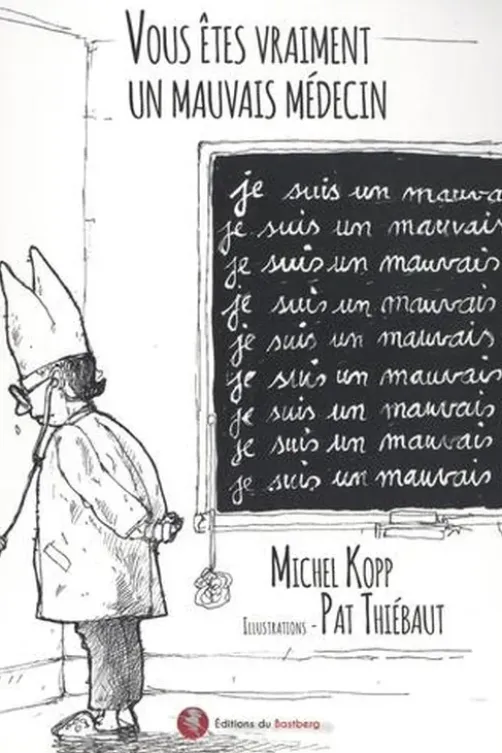 VOUS ÊTES VRAIMENT
UN MAUVAIS MÉDECIN
je suis un mauva
je suis un mauvais
je suis un mauvais
je suis un mauvais
je suis un mauvais
je suis un mauvais
je suis un mauvais
je suis un mauvais
je suis un mauvais
MICHEL KOPP
ILLUSTRATIONS - PAT THIÉBAUT
Éditions du Bastberg